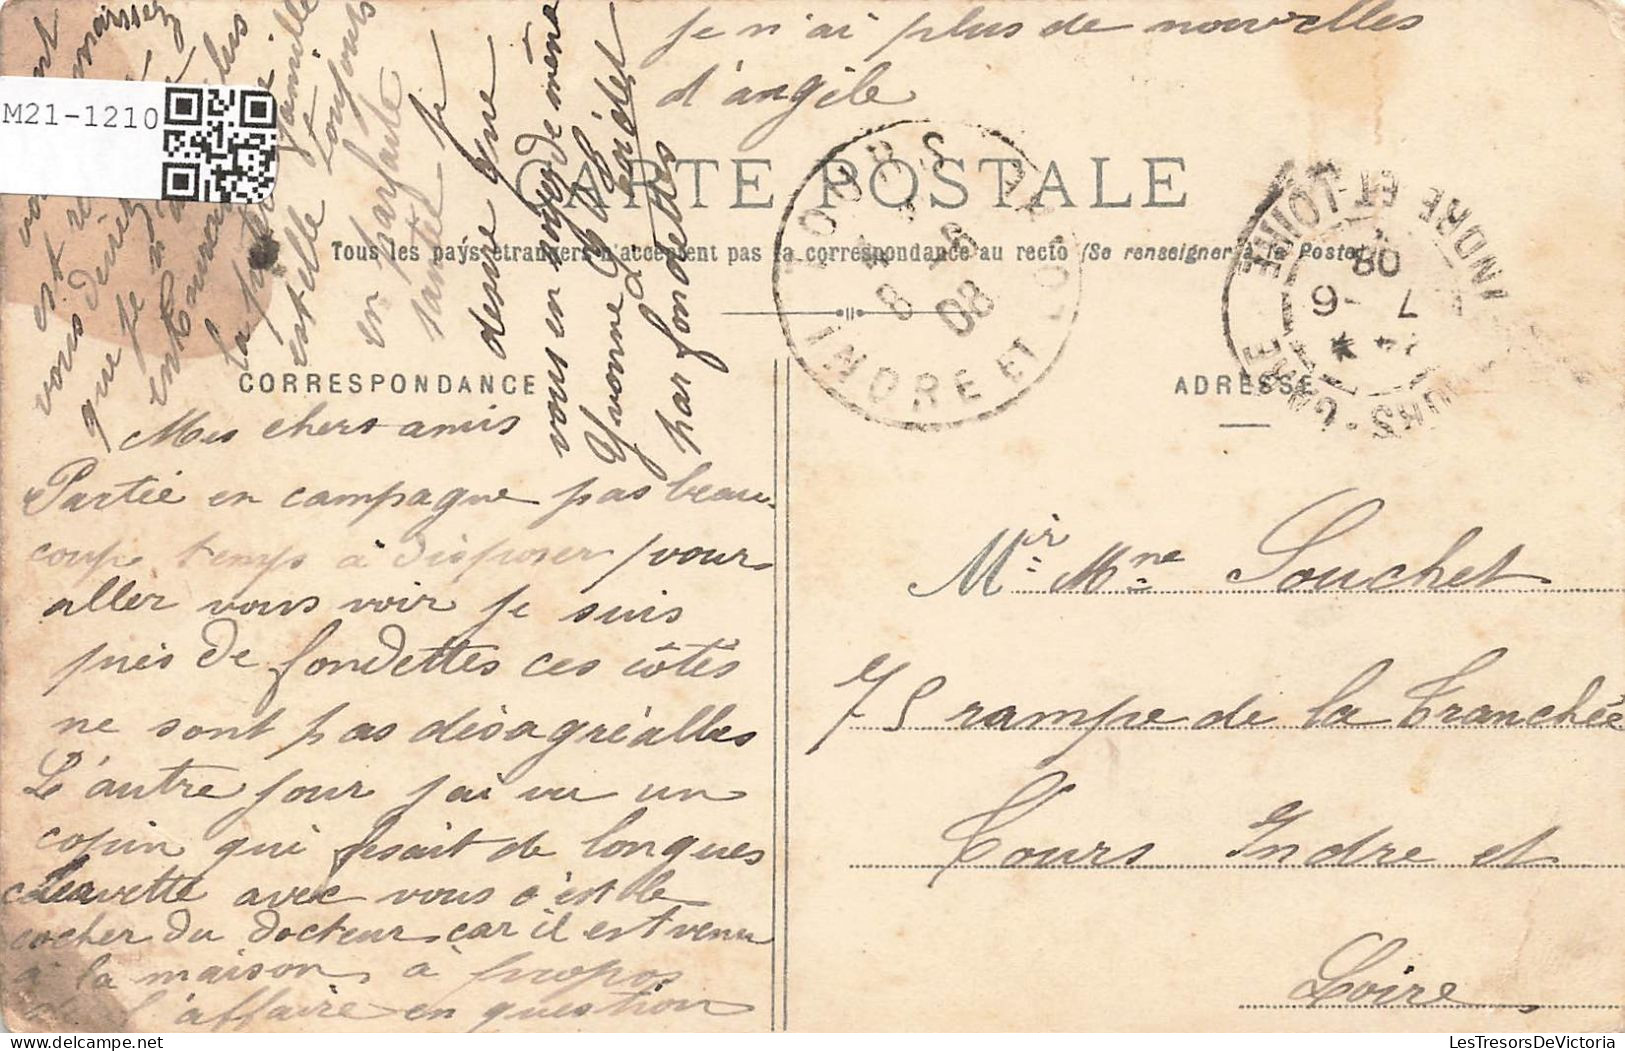 je n'ai plus de nouvelles
d'angile
M21-1210
CARTE POSTALE
Tous les pays étrangers n'acceptent pas la correspondance au recto (Se renseigner à la Poste)
TOURS
8 08
INDRE ET LOIRE
TOURS-GARE
INDRE-ET-LOIRE
7 -6
08
CORRESPONDANCE
ADRESSE
Mes chers amis
Partie en campagne pas beau-
coup temps à disposer pour
aller vous voir je suis
près de fondettes ces côtés
ne sont pas désagréalbes
L'autre jour j'ai vu un
copin qui fsait de longues
avec vous c'est le
cocher du docteur car il est venu
à la maison à propos
de l'affaire en question
vous devriez
que je n'ai
la famille
est elle toujours
en parfaite
santé je
désire que
vous en soyez de même
Yvonne
par fondettes
Mr Mme Souchet
75 rampe de la Tranchée
Tours Indre et
Loire
LesTresorsDeVictoria